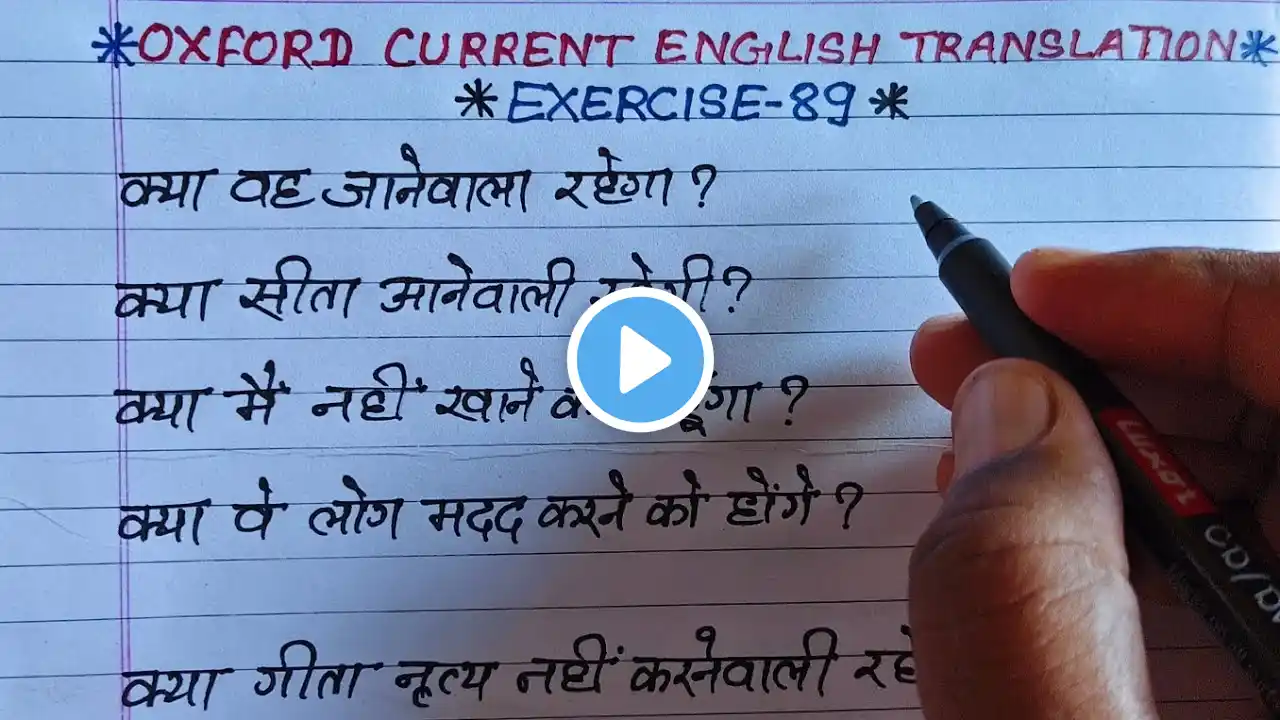 *OXFORD CURRENT ENGLISH TRANSLATION*
*EXERCISE-89*
क्या वह जानेवाला रहेगा ?
क्या सीता आनेवाली ?
क्या मैं नहीं खाने ?
क्या वे लोग मदद करने को होंगे ?
क्या गीता नृत्य नहीं करनेवाली
Luxor